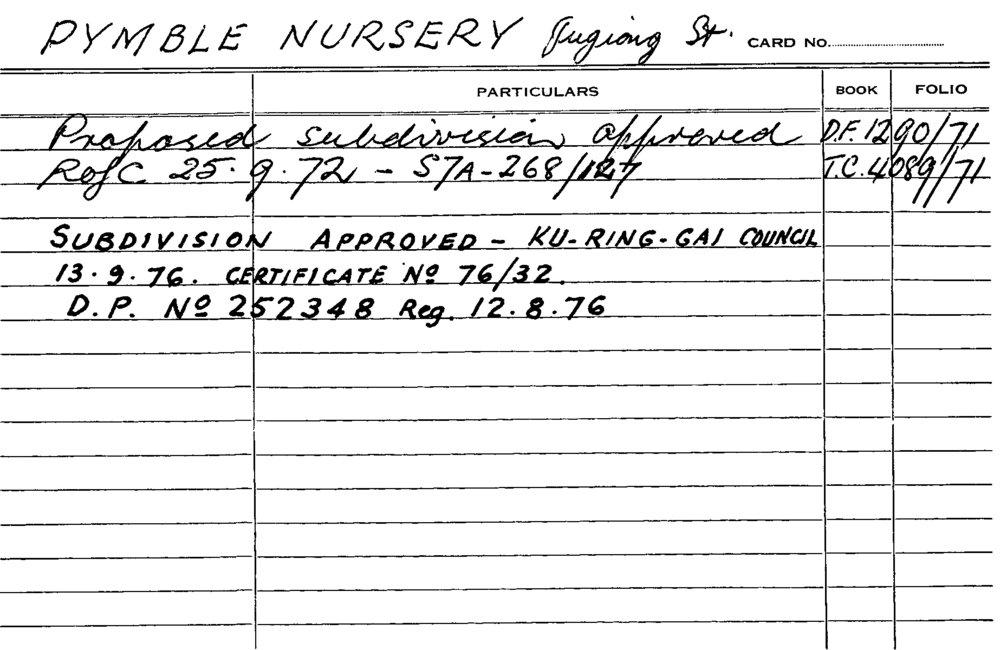 PYMBLE NURSERY Jugiong St. CARD No.
PARTICULARS BOOK FOLIO
Proposed subdivision approved D.F. 1290/71
RofC 25.9.72 - S7A-268/127 T.C. 4089/71
SUBDIVISION APPROVED - KU-RING-GAI COUNCIL
13.9.76. CERTIFICATE Nº 76/32.
D.P. Nº 252348 Reg. 12.8.76